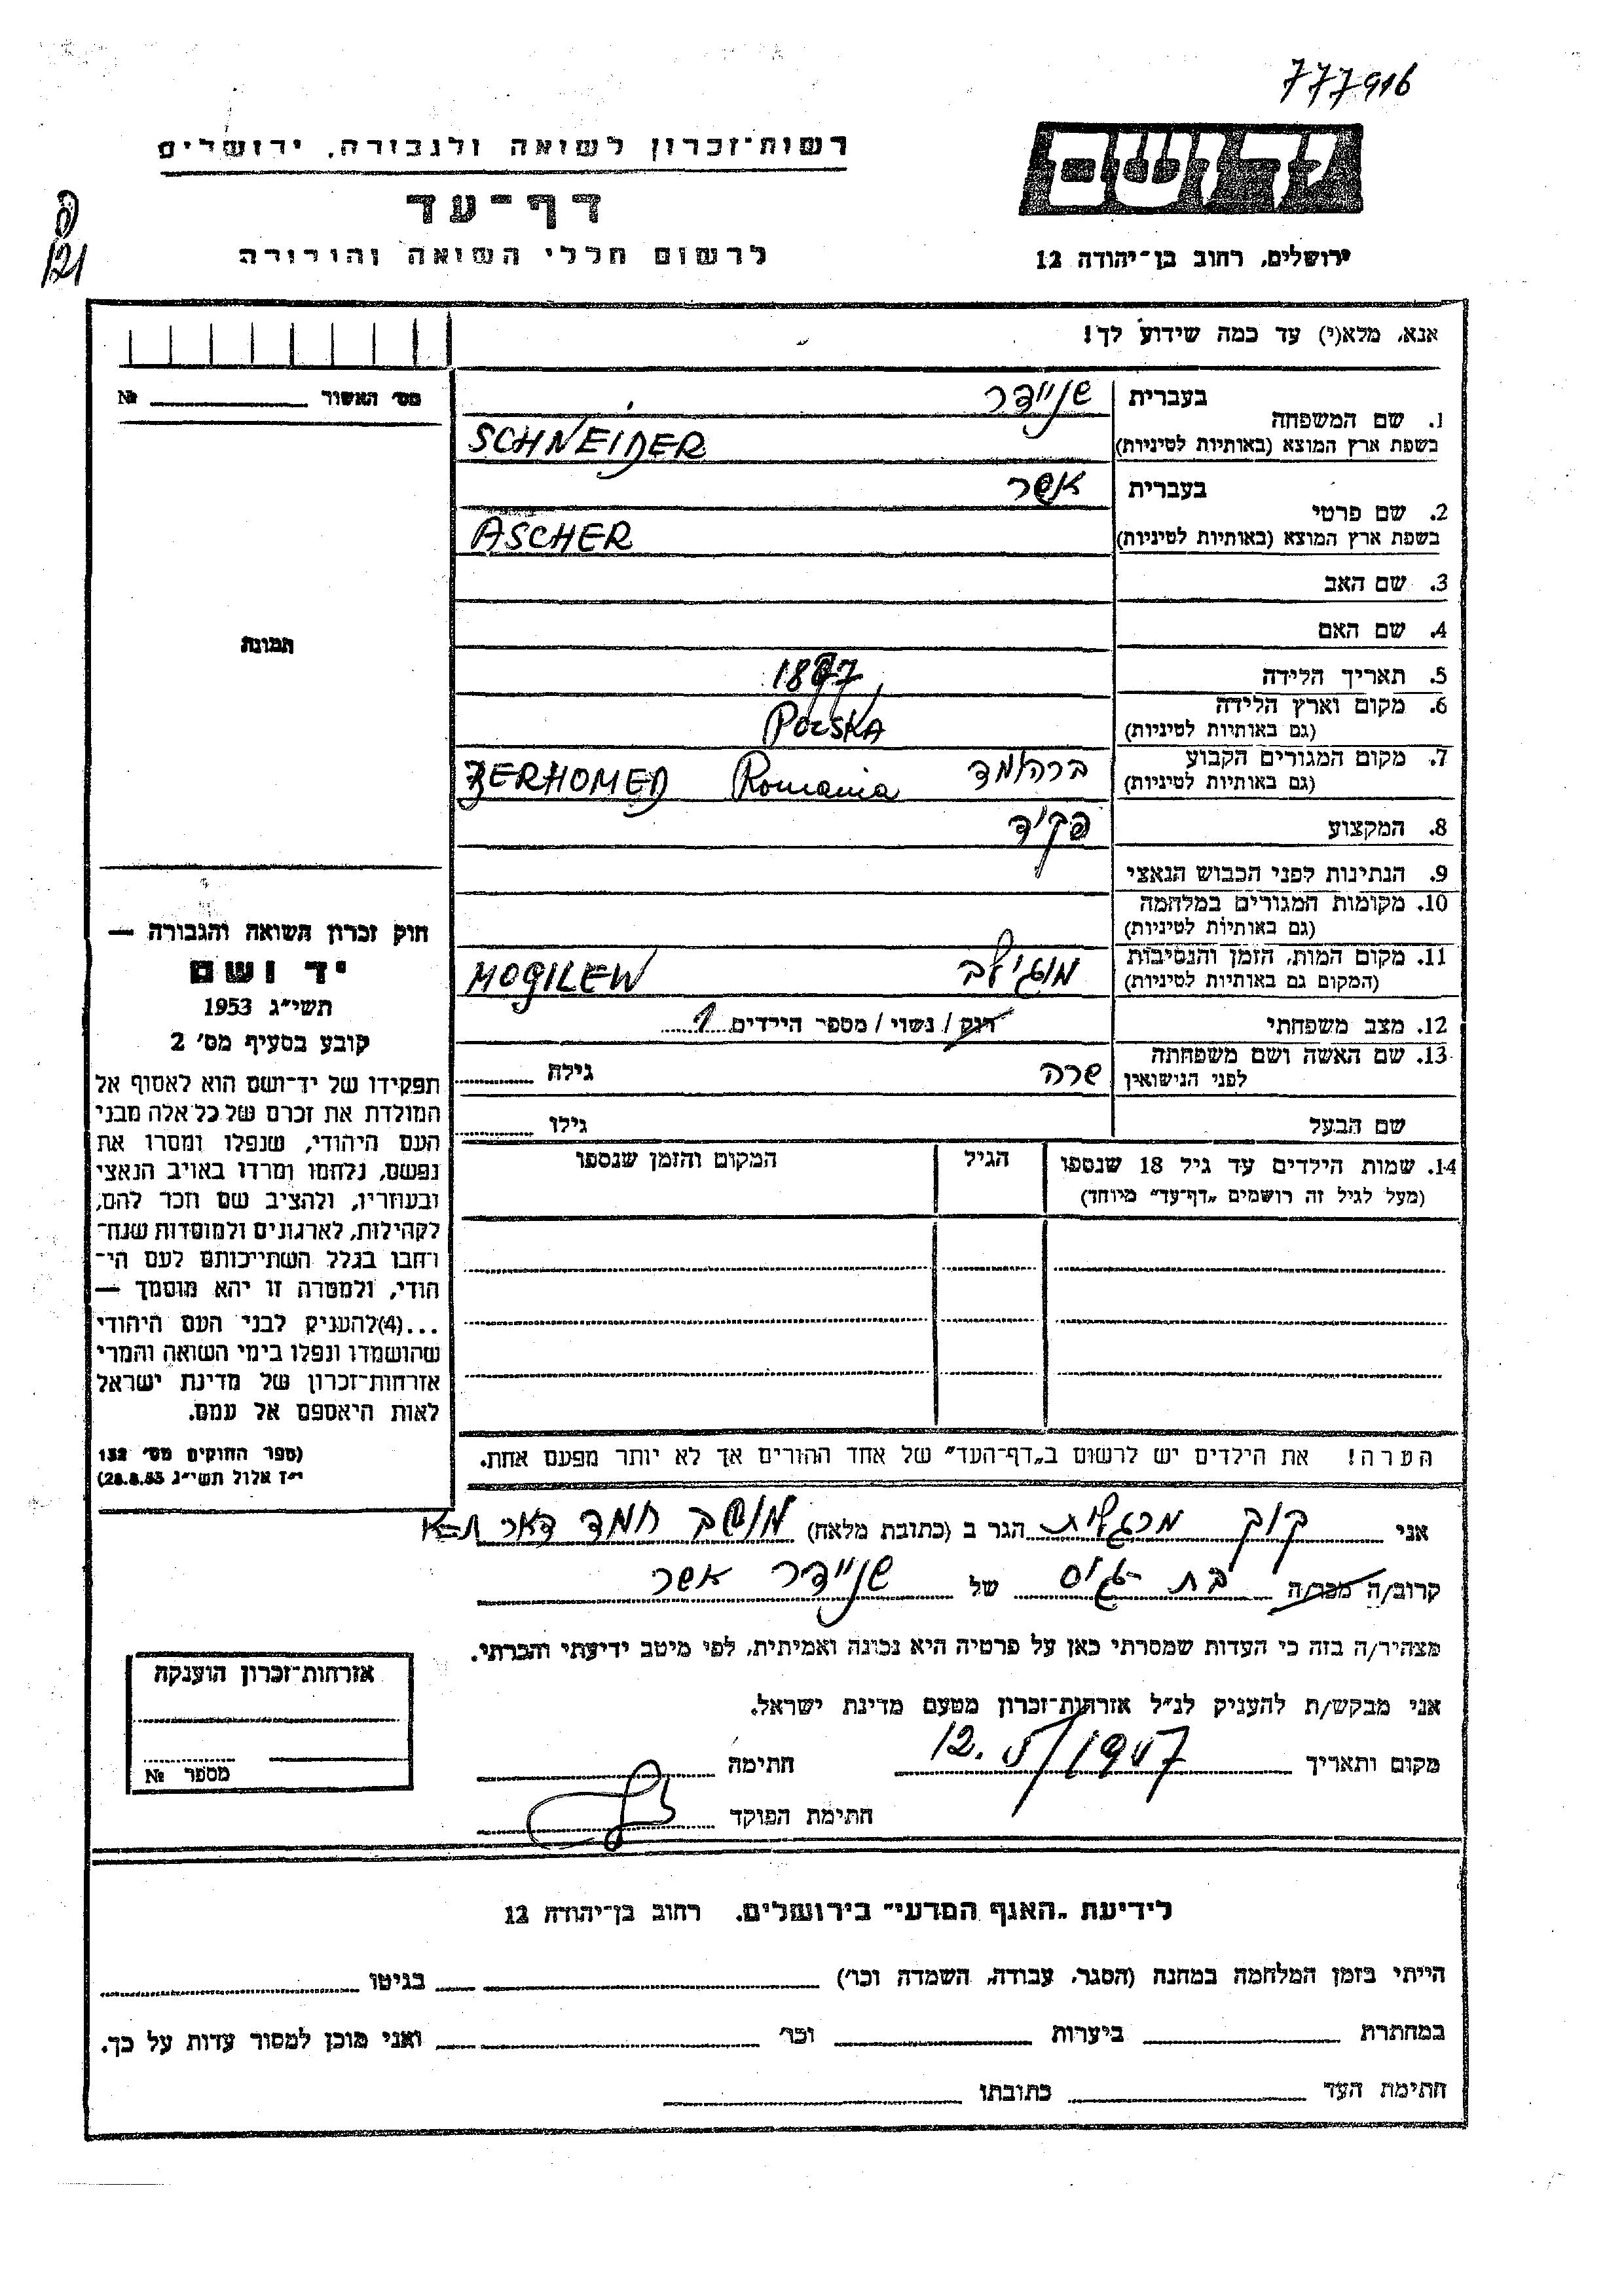 777916
יד ושם
ירושלים, רחוב בן־יהודה 12
רשות־זכרון לשואה ולגבורה, ירושלים
דף־עד
לרשום חללי השואה והגבורה
121
אנא, מלא(י) עד כמה שידוע לך!
מס׳ האשור № 
1. שם המשפחה בעברית שניידר
בשפת ארץ המוצא (באותיות לטיניות) SCHNEIDER
2. שם פרטי בעברית אשר
בשפת ארץ המוצא (באותיות לטיניות) ASCHER
3. שם האב
4. שם האם
תמונה
5. תאריך הלידה
6. מקום וארץ הלידה POLSKA
(גם באותיות לטיניות)
7. מקום המגורים הקבוע ברהומד Romania BERHOMED
(גם באותיות לטיניות)
8. המקצוע פקיד
9. הנתינות לפני הכבוש הנאצי
10. מקומות המגורים במלחמה
(גם באותיות לטיניות)
11. מקום המות, הזמן והנסיבות מוגילב MOGILEW
(המקום גם באותיות לטיניות)
12. מצב משפחתי רוק / נשוי / מספר הילדים 1
13. שם האשה ושם משפחתה לפני הנישואין שרה גילה
שם הבעל גילו
14. שמות הילדים עד גיל 18 שנספו הגיל המקום והזמן שנספו
(מעל לגיל זה רושמים „דף־עד״ מיוחד)
הערה! את הילדים יש לרשום ב„דף־העד״ של אחד ההורים אך לא יותר מפעם אחת.
חוק זכרון השואה והגבורה —
יד ושם
תשי״ג 1953
קובע בסעיף מס׳ 2
תפקידו של יד־ושם הוא לאסוף אל
המולדת את זכרם של כל אלה מבני
העם היהודי, שנפלו ומסרו את
נפשם, נלחמו ומרדו באויב הנאצי
ובעוזריו, ולהציב שם וזכר להם,
לקהילות, לארגונים ולמוסדות שנח־
רבו בגלל השתייכותם לעם הי־
הודי, ולמטרה זו יהא מוסמך —
...(4)להעניק לבני העם היהודי
שהושמדו ונפלו בימי השואה והמרי
אזרחות־זכרון של מדינת ישראל
לאות היאספם אל עמם.
(ספר החוקים מס׳ 132
י״ז אלול תשי״ג 28.8.53)
אני קוק מרגלית הגר ב (כתובת מלאה) מושב חמד דאר ת־א
קרוב/ה מכר/ה בת גיס של שניידר אשר
מצהיר/ה בזה כי העדות שמסרתי כאן על פרטיה היא נכונה ואמיתית, לפי מיטב ידיעתי והכרתי.
אני מבקש/ת להעניק לנ״ל אזרחות־זכרון מטעם מדינת ישראל.
מקום ותאריך 12. 5/1957 חתימה
חתימת הפוקד
אזרחות־זכרון הוענקה
מספר №
לידיעת „האגף המדעי״ בירושלים. רחוב בן־יהודה 12
הייתי בזמן המלחמה במחנה (הסגר, עבודה, השמדה וכו׳) בגיטו
במחתרת ביערות וכו׳ ואני מוכן למסור עדות על כך.
חתימת העד כתובתו